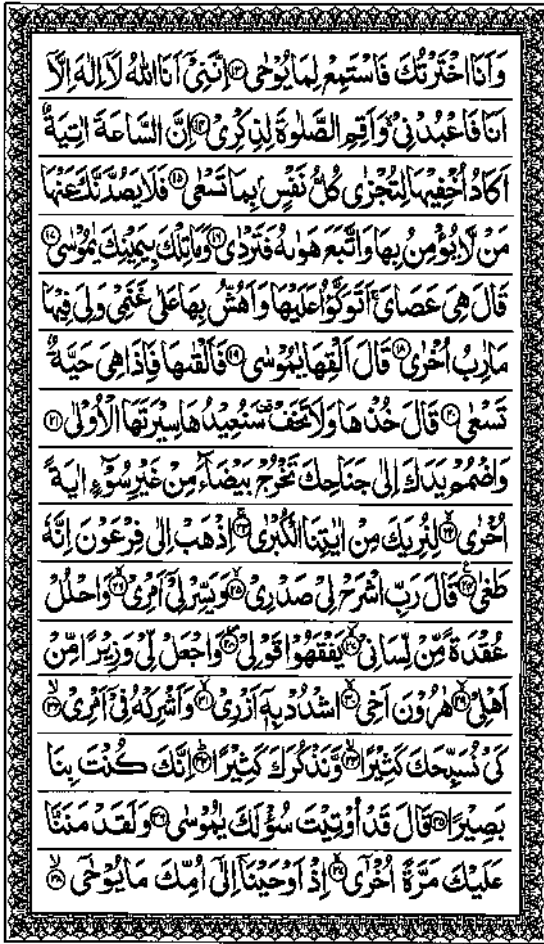 وَاَنَا اخْتَرْتُكَ فَاسْتَمِعْ لِمَا يُوْحٰى ﴿۱۳﴾ اِنَّنِیْۤ اَنَا اللّٰهُ لَاۤ اِلٰهَ اِلَّاۤ
اَنَا فَاعْبُدْنِیْ ۙ وَاَقِمِ الصَّلٰوةَ لِذِكْرِیْ ﴿۱۴﴾ اِنَّ السَّاعَةَ اٰتِیَةٌ
اَكَادُ اُخْفِیْهَا لِتُجْزٰى كُلُّ نَفْسٍۭ بِمَا تَسْعٰى ﴿۱۵﴾ فَلَا یَصُدَّنَّكَ عَنْهَا
مَنْ لَّا یُؤْمِنُ بِهَا وَاتَّبَعَ هَوٰىهُ فَتَرْدٰى ﴿۱۶﴾ وَمَا تِلْكَ بِیَمِیْنِكَ یٰمُوْسٰى ﴿۱۷﴾
قَالَ هِیَ عَصَایَ ۚ اَتَوَكَّؤُا عَلَیْهَا وَاَهُشُّ بِهَا عَلٰى غَنَمِیْ وَلِیَ فِیْهَا
مَاٰرِبُ اُخْرٰى ﴿۱۸﴾ قَالَ اَلْقِهَا یٰمُوْسٰى ﴿۱۹﴾ فَاَلْقٰىهَا فَاِذَا هِیَ حَیَّةٌ
تَسْعٰى ﴿۲۰﴾ قَالَ خُذْهَا وَلَا تَخَفْ ۥ سَنُعِیْدُهَا سِیْرَتَهَا الْاُوْلٰى ﴿۲۱﴾
وَاضْمُمْ یَدَكَ اِلٰى جَنَاحِكَ تَخْرُجْ بَیْضَآءَ مِنْ غَیْرِ سُوْٓءٍ اٰیَةً
اُخْرٰى ﴿۲۲﴾ لِنُرِیَكَ مِنْ اٰیٰتِنَا الْكُبْرٰى ﴿۲۳﴾ اِذْهَبْ اِلٰى فِرْعَوْنَ اِنَّهٗ
طَغٰى ﴿۲۴﴾ قَالَ رَبِّ اشْرَحْ لِیْ صَدْرِیْ ﴿۲۵﴾ وَیَسِّرْ لِیْۤ اَمْرِیْ ﴿۲۶﴾ وَاحْلُلْ
عُقْدَةً مِّنْ لِّسَانِیْ ﴿۲۷﴾ یَفْقَهُوْا قَوْلِیْ ﴿۲۸﴾ وَاجْعَلْ لِّیْ وَزِیْرًا مِّنْ
اَهْلِیْ ﴿۲۹﴾ هٰرُوْنَ اَخِی ﴿۳۰﴾ اشْدُدْ بِهٖۤ اَزْرِیْ ﴿۳۱﴾ وَاَشْرِكْهُ فِیْۤ اَمْرِیْ ﴿۳۲﴾
كَیْ نُسَبِّحَكَ كَثِیْرًا ﴿۳۳﴾ وَّنَذْكُرَكَ كَثِیْرًا ﴿۳۴﴾ اِنَّكَ كُنْتَ بِنَا
بَصِیْرًا ﴿۳۵﴾ قَالَ قَدْ اُوْتِیْتَ سُؤْلَكَ یٰمُوْسٰى ﴿۳۶﴾ وَلَقَدْ مَنَنَّا
عَلَیْكَ مَرَّةً اُخْرٰۤى ﴿۳۷﴾ اِذْ اَوْحَیْنَاۤ اِلٰۤى اُمِّكَ مَا یُوْحٰۤى ﴿۳۸﴾